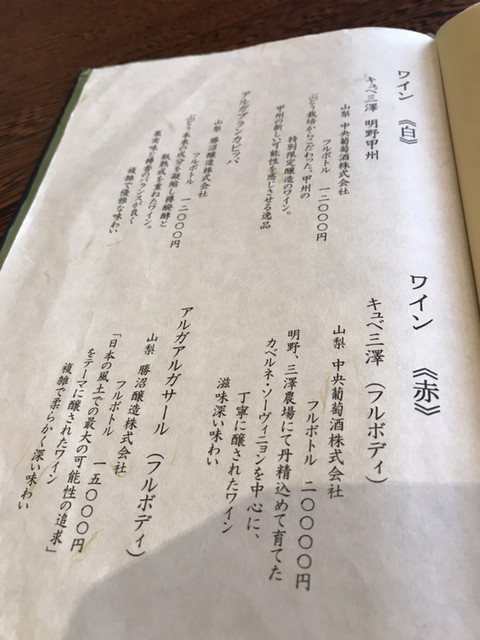 ワイン 《白》
キュベ三澤 明野甲州
山梨 中央葡萄酒株式会社
フルボトル 一二〇〇〇円
ぶどう栽培からこだわった、甲州の
特別限定醸造のワイン。
甲州の新しい可能性を感じさせる逸品
アルガブランカピッパ
山梨 勝沼醸造株式会社
フルボトル 一二〇〇〇円
ぶどう本来の成分を凝縮し樽醗酵と
瓶熟成を重ねたワイン。
果実味と樽香のバランスが良く
複雑で優雅な味わい
ワイン 《赤》
キュベ三澤 (フルボディ)
山梨 中央葡萄酒株式会社
フルボトル 二〇〇〇〇円
明野、三澤農場にて丹精込めて育てた
カベルネ・ソーヴィニョンを中心に、
丁寧に醸されたワイン
滋味深い味わい
アルガアルガサール (フルボディ)
山梨 勝沼醸造株式会社
フルボトル 一五〇〇〇円
「日本の風土での最大の可能性の追求」
をテーマに醸されたワイン
複雑で柔らかく深い味わい